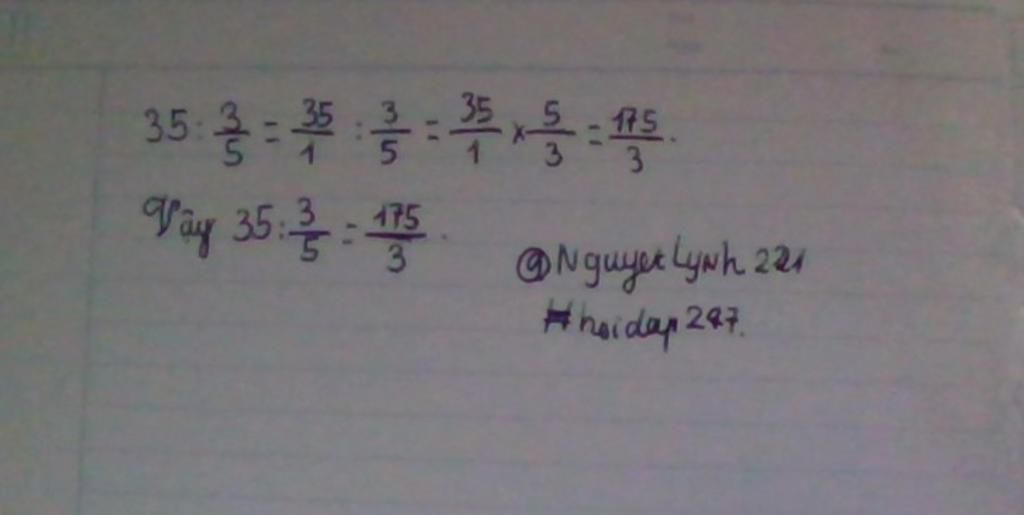 35 : 3/5 = 35/1 : 3/5 = 35/1 × 5/3 = 175/3.
Vậy 35 : 3/5 = 175/3.
@NguyetLynh 221
#hoidap247.